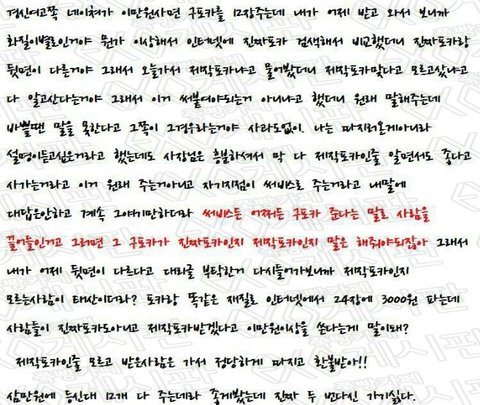 경신여고쪽 네이처가 이만원사면 구포카를 12장주는데 내가 어제 받고 와서 보니까
화질이별로인거야 뭔가 이상해서 인터넷에 진짜포카 검색해서 비교했더니 진짜포카랑
뒷면이 다른거야 그래서 오늘가서 제작포카냐고 물어봤더니 제작포카맞다고 모르고샀냐고
다 알고산다는거야 그래서 이거 써붙여야되는거 아니냐고 했더니 원래 말해주는데
바쁠땐 말을 못한다고 그쪽이 그경우라는거야 사과도없이. 나는 따지러온게아니라
설명이듣고싶은거라고 했는데도 사장님은 흥분하셔서 막 다 제작포카인줄 알면서도 좋다고
사가는거라고 이거 원래 주는거아니고 자기지점이 써비스로 주는거라고 내말에
대답은안하고 계속 그얘기만하더라 써비스든 어쩌든 구포카 준다는 말로 사람을
끌어들인거고 그러면 그 구포카가 진짜포카인지 제작포카인지 말은 해줘야되잖아 그래서
내가 어제 뒷면이 다르다고 대리글 부탁한거 다시들어가보니까 제작포카인지
모르는사람이 태산이더라? 포카랑 똑같은 재질로 인터넷에서 24장에 3000원 파는데
사람들이 진짜포카도아니고 제작포카받겠다고 이만원이상을 쓴다는게 말이돼?
제작포카인줄 모르고 받은사람은 가서 정당하게 따지고 환불받아!!
삼만원에 등신대 12개 다 주는데라 좋게봤는데 진짜 두 번다신 가기싫다.